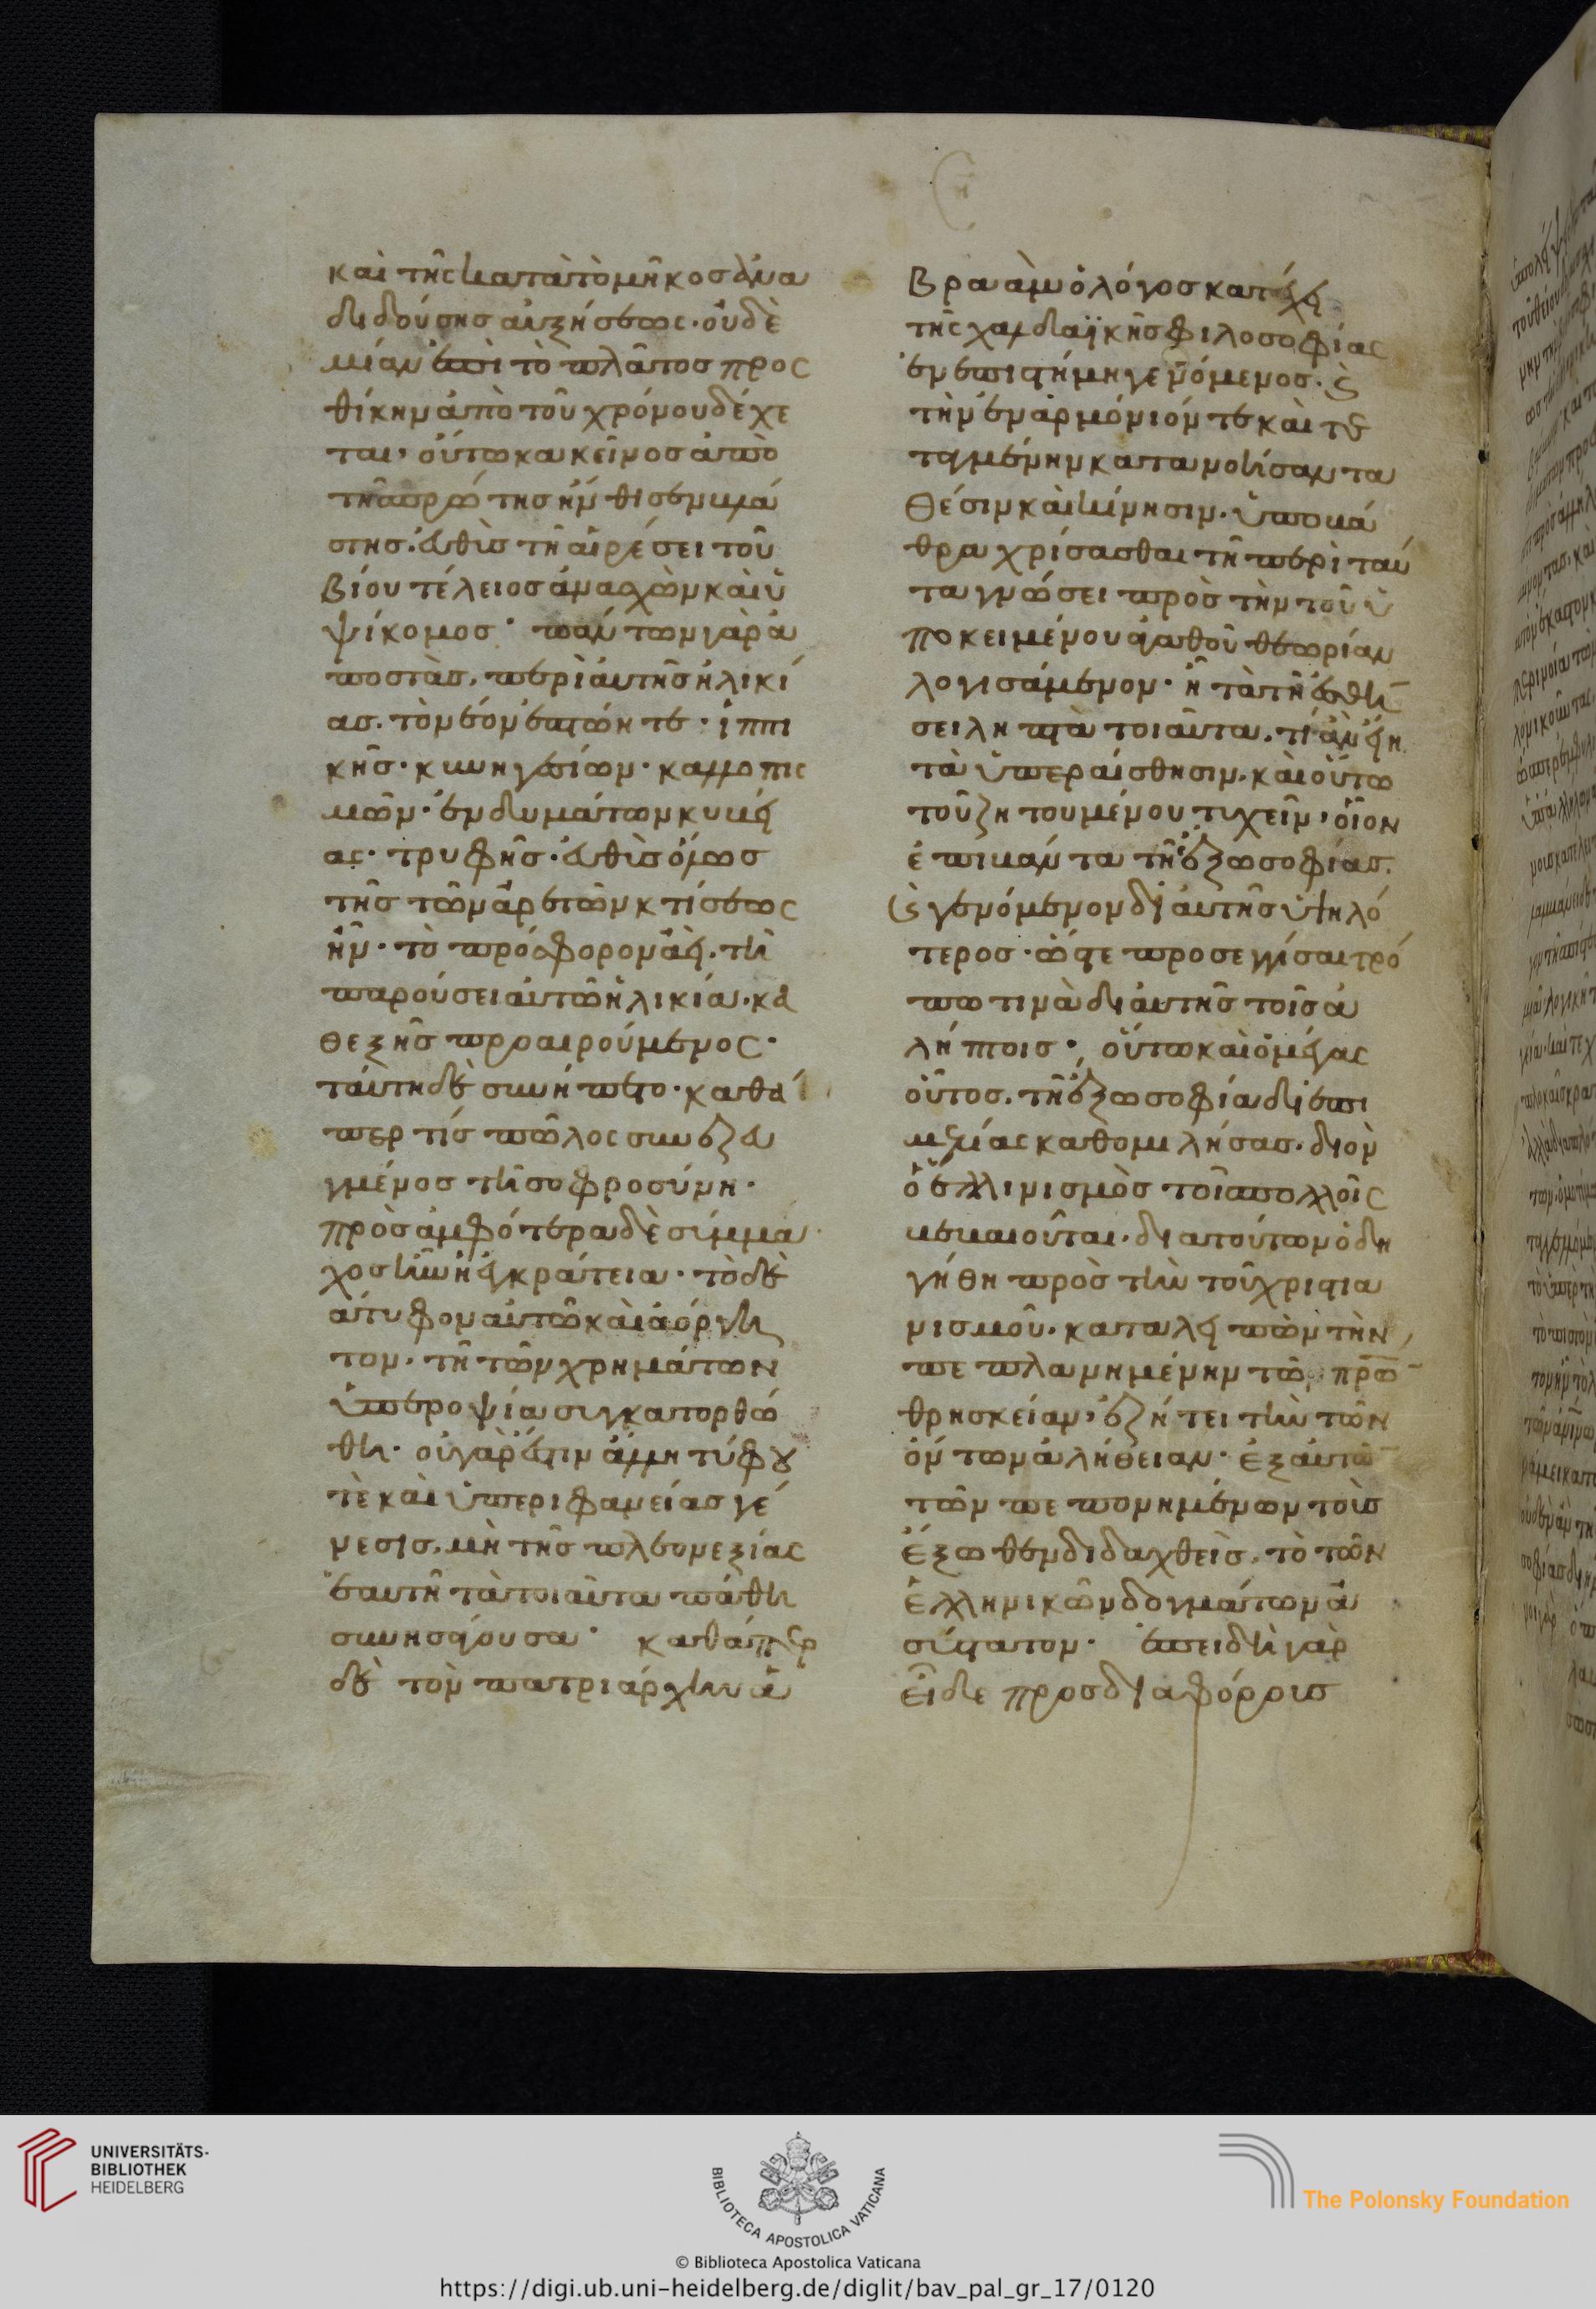 καὶ τῆς κατὰ τὸ μῆκοσ ἀνα
διδούσησ αὐξήσεως· οὐδὲ
μίαν ἐπὶ τὸ πλάτοσ προς
θίκην ἀπὸ τοῦ χρόνου δέχε
ται, οὕτω κακεῖνοσ ἀπὸ
στησ. εὐθὺσ τῆ αἱρέσει τοῦ
βίου τέλειοσ ἀνασχὼν καὶ ὑ
ψίκομοσ· πάντων γὰρ ἀ
ποστὰσ, περὶ ἁ αὐτῆσ ἡλικί
ασ. τὸν νέον ἐπτώητε· ἱππι
κῆσ· κυνηγεσίων· καλλοπις
μῶν· ἐνδυμάτων κυβεί
ας· τρυφῆσ· εὐθὺσ ὅλωσ
τῆσ τῶν ἀρετῶν κτίσεως
ἦν· τὸ πρόσφορον ἀεὶ. τῆ
παρούσει αὐτῶ ἡλικία. κα
θεξῆσ προαιρούμενος·
ταύτη δὲ συνήπετο· καθά
περ τίσ πῶλος συνεζευ
γμένοσ τῆ σοφροσύνη·
πρὸσ ἀμφότερα δὲ σύμμα
χοσ ἦν ἡ ἐγκράτεια· τὸ δὲ
ἄτυφον αὐτῶ καὶ ἀόργη
τον. τῆ τῶν χρημάτων
ὑπεροψία συγκατορθώ
θη· οὐ γὰρ ἐστιν ἄλλη τύφου
τὲ καὶ ὑπεριφανείασ γέ
νεσισ. μὴ τῆσ πλεονεξίας
ἑαυτῆ τὰ τοιαῦτα πάθη
συνησφούσα· καθάπερ
δὲ τὸν πατριάρχην ἀ
βραὰμ ὁ λόγοσ κατέχει
τῆς χαλδαϊκῆσ φιλοσοφίας
ἐν ἐπιστήμη γενόμενοσ. καὶ
τὴν ἐναρμόνιόν τε καὶ τε
ταγμένην κατανοήσαντα
θέσιν καὶ κίνησιν. ὑποβά
θρα χρίσασθαι τῆ περὶ ταύ
τα γνώσει πρὸσ τὴν τοῦ ὑ
ποκειμένου ἀγαθοῦ θεωρίαν
λογισάμενον· εἰ τὰ τῆ αἰσθή
σει ληπτὰ τοιαῦτα. τί ἂν εἴη
τὰ ὑπὲρ αἴσθησιν. καὶ οὕτω
τοῦ ζητουμένου τυχεῖν, οἷον
ἐπιβάντα τῆσ ἔξω σοφίασ.
καὶ γενόμενον δι αὐτῆσ ὑψηλό
τεροσ· ὥστε προσεγγίσαι τρό
πω τινὰ δι αὐτῆσ τοῖσ ἀ
λήπτοισ· οὕτω καὶ ὁ μέγας
οὗτοσ. τῆ ἔξω σοφία δι ἐπι
μελείας καθομιλήσασ. δι ὃν
ὁ ἑλλινισμὸσ τοῖσ πολλοῖς
βεβαιοῦται. διὰ τούτων ὁδη
γήθη πρὸσ τὴν τοῦ χριστια
νισμοῦ. καταλειπὼν τὴν
πεπλανημένην τῶν πρων
θρησκείαν, ἐζήτει τὴν τῶν
ὄντων ἀλήθειαν· ἐξ αὐτῶν
τῶν πεπονημένων τοῖσ
ἔξωθεν διδαχθεὶσ. τὸ τῶν
ἑλληνικῶν δογμάτων ἀ
σύστατον· ἐπειδὴ γὰρ
εἶδε προσ διαφόρουσ
UNIVERSITÄTS-
BIBLIOTHEK
HEIDELBERG
BIBLIOTECA APOSTOLICA VATICANA
© Biblioteca Apostolica Vaticana
The Polonsky Foundation
https://digi.ub.uni-heidelberg.de/diglit/bav_pal_gr_17/0120